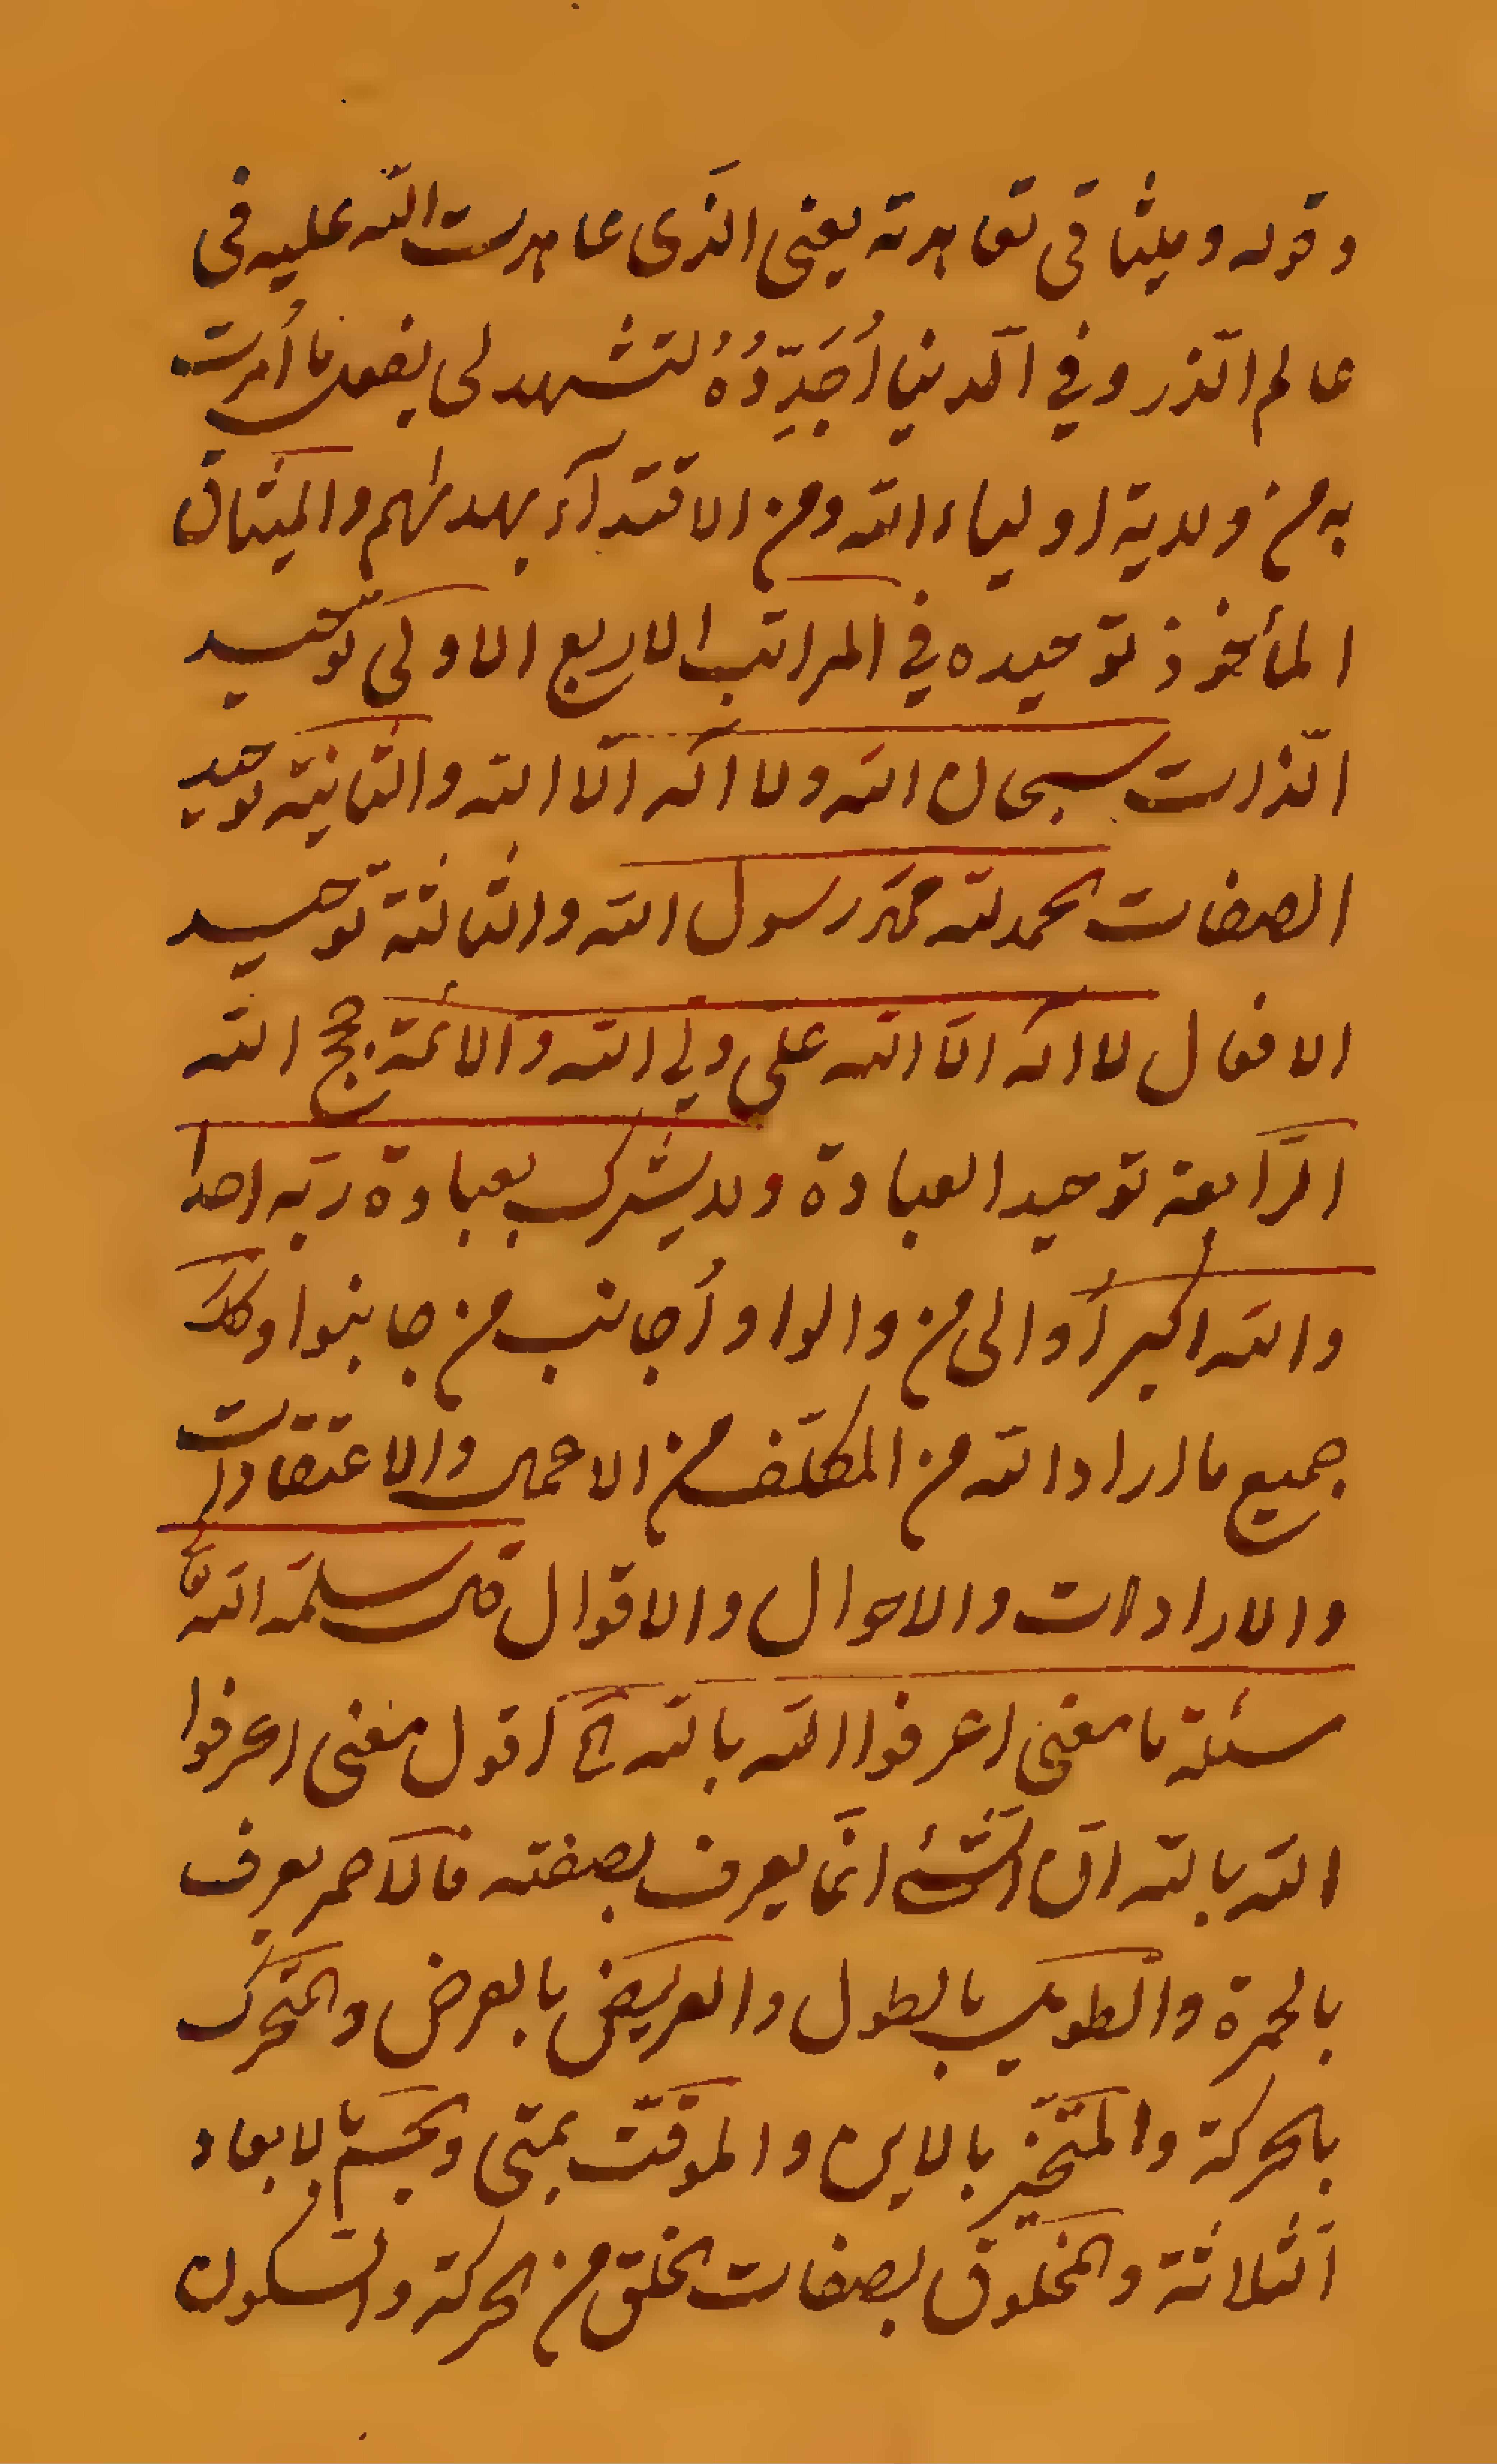 وقوله وميثاقى تعاهدته يعنى الذى عاهدت الله عليه فى
عالم الذر وفى الدنيا أُجَدِّدُهُ لتشهد لى بفعل ما أمرت
به من ولاية اولياء الله ومن الاقتدآء بهداهم والميثاق
المأخوذ توحيده فى المراتب الاربع الاولى توحيد
الذات سبحان الله ولا اله الّا الله والثانية توحيد
الصفات الحمد لله محمّد رسول الله والثالثة توحيد
الافعال لا اله الّا الله على ولى الله والائمّة حجج الله
الرّابعة توحيد العبادة ولا يشرك بعبادة ربّه احدا
والله اكبر أُوالى من والوا وأُجانب من جانبوا وكك
جميع ما اراد الله من المكلّف من الاعمال والاعتقادات
والارادات والاحوال والاقوال قال سلمه الله تع
مسئلة ما معنى اعرفوا الله بالله الخ اقول معنى اعرفوا
الله بالله انّ الشّئ انّما يعرف بصفته فالاحمر يعرف
بالحمرة والطويل بالطول والعريض بالعرض والمتحرك
بالحركة والمتحيّز بالاين والموقّت بمتى والجسم بالابعاد
الثلاثة والمخلوق بصفات الخلق من الحركة والسكون